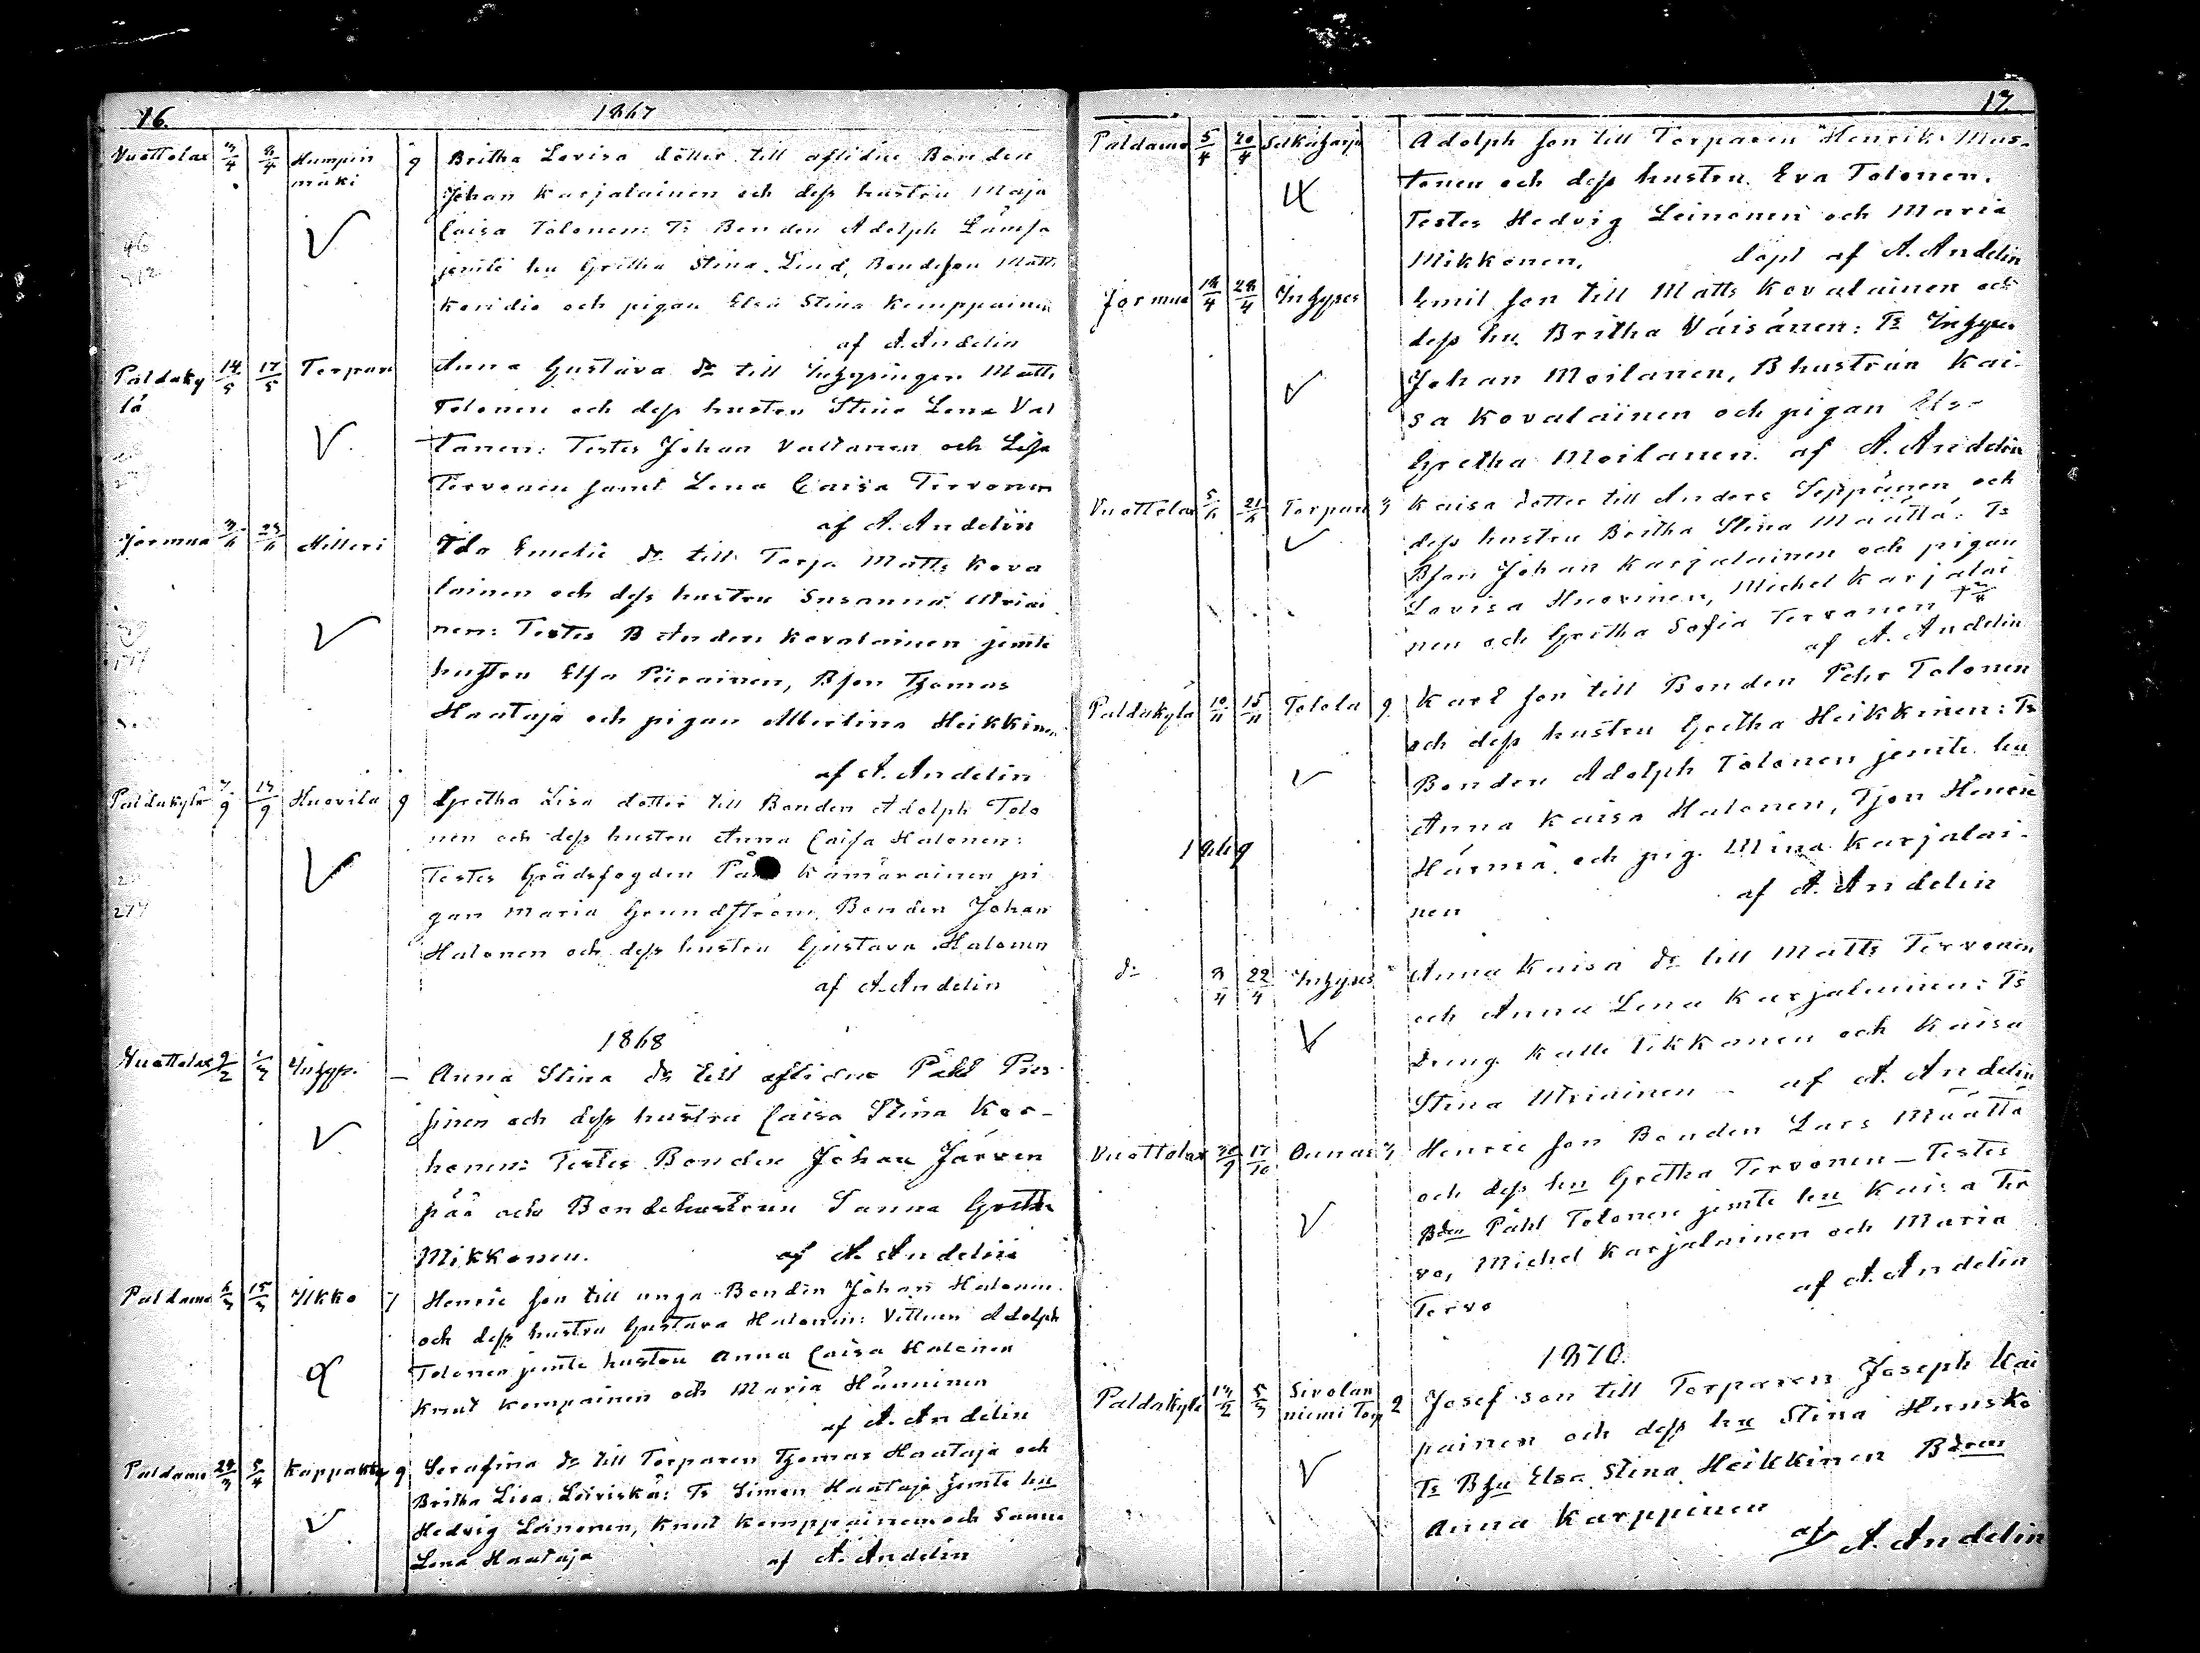 16.
1867
Vuottolax 3/4 8/4 Humpin mäki 9 Britha Lovisa dotter till aflidne Bonden
Johan Karjalainen och dess hustru Maja
Caisa Tolonen: Ts Bonden Adolph Lämsa
jemte hu Gretha Stina Lind, Bondeson Matts
och pigan Elsa Stina Kemppainen
af A. Andelin
Paldaky lä 14/5 17/5 Torpan Anna Gustava dr till Inhysingen Matts
Tolonen och dess hustru Stina Lena Val
tanen: Testes Johan Valtanen och Lisa
Tervonen samt Lena Caisa Tervonen
af A. Andelin
Jormua 3/6 23/6 Milleri Ida Emelie dr till Torpa Matts Kova
lainen och dess hustru Susanna Mriai
nen: Testes B Anders Kovalainen jemte
hustru Elsa Piirainen, Bson Thomas
Haataja och pigan Albertina Heikkinen
af A. Andelin
Paldakylä 7/9 17/9 Huovila 9 Gretha Lisa dotter till Bonden Adolph Tolo
nen och dess hustru Anna Caisa Halonen:
Testes Kämäräinen pi
gan Maria Grundström, Bonden Johan
Halonen och dess hustru Gustava Halonen
af A. Andelin
1868
Vuottolax 9/2 1/3 Inhys. – Anna Stina dr till aflidne Påhl Pies
sinen och dess hustru Caisa Stina Kor-
honen: Testes Bonden Johan Järven
pää och Bondehustrun Sanna Gretha
Mikkonen. af A. Andelin
Paldamo 6/3 15/3 Ikko 7 Henric son till unga Bonden Johan Halonen
och dess hustru Gustava Halonen: Vittnen Adolph
Tolonen jemte hustru Anna Caisa Halonen
Knut Kempainen och Maria Hänninen
af A. Andelin
Paldamo 29/3 5/4 9 Serafina dr till Torparen Thomas Haataja och
Britha Lisa Leiviskä: Ts Simon Haataja jemte hu
Hedvig Leinonen, Knut Kemppainen och Sanna
Lena Haataja af A. Andelin
17.
Paldamo 5/4 20/4 Selkäharju Adolph son till Torparen Henrik Mus-
tonen och dess hustru Eva Tolonen.
Testes Hedvig Leinonen och Maria
Mikkonen. döpt af A. Andelin
Jormua 18/4 28/4 Inhyses Emil son till Matts Kovalainen och
dess hu Britha Väisänen: Ts Inhyses
Johan Moilanen, B hustrun Kai-
sa Kovalainen och pigan Els-
Gretha Moilanen. af A. Andelin
Vuottolax 5/6 21/6 Torpan 7 Kaisa dotter till Anders Seppänen och
dess hustru Britha Stina Määttä: Ts
Bson Johan Karjalainen och pigan
Lovisa Huovinen, Michel Karjalai
nen och Gretha Sofia Tervonen
af A. Andelin
Paldakylä 10/11 15/11 Tolola 9 Karl son till Bonden Pehr Tolonen
och dess hustru Gretha Heikkinen: Ts
Bonden Adolph Tolonen jemte hu
Anna Kaisa Halonen, Tjon Henric
1869 Härmä och pig. Mina Karjalai-
nen af A. Andelin
do 3/4 22/4 Inhyses Anna Kaisa dr till Matts Tervonen
och Anna Lena Karjalainen: Ts
Dreng. Kalle Tikkanen och Kaisa
Stina Mriainen – af A. Andelin
Vuottolax 30/9 17/10 Ounas 7 Henric son Bonden Lars Määttä
och dess hu Gretha Tervonen – Testes
Bden Påhl Tolonen jemte hu Kaisa Ter
vo, Michel Karjalainen och Maria
Tervo af A. Andelin
1870.
Paldakylä 14/2 5/3 Sivolan niemi Torp 2 Josef son till Torparen Joseph Kai
painen och dess hu Stina Hunsko
Ts Bhu Elsa Stina Heikkinen Bdren
Anna Karppinen
af A. Andelin